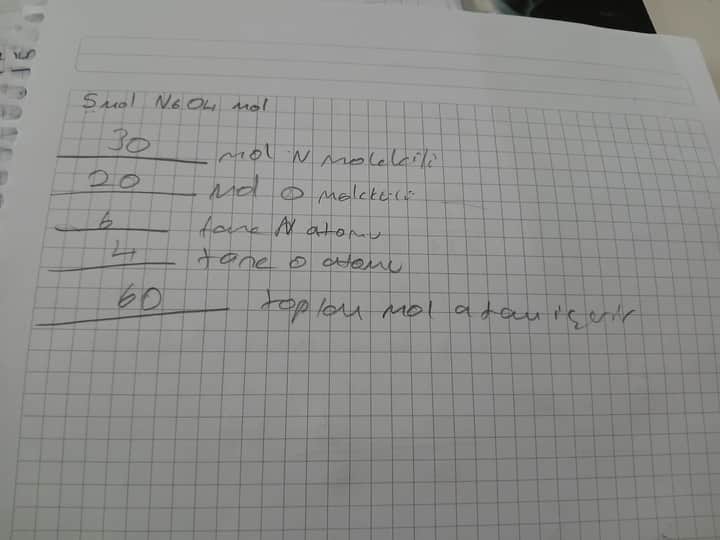 5 mol N6O4 mol
30 mol N molekülü
20 mol O molekülü
6 tane N atomu
4 tane O atomu
60 toplam mol atom içerir